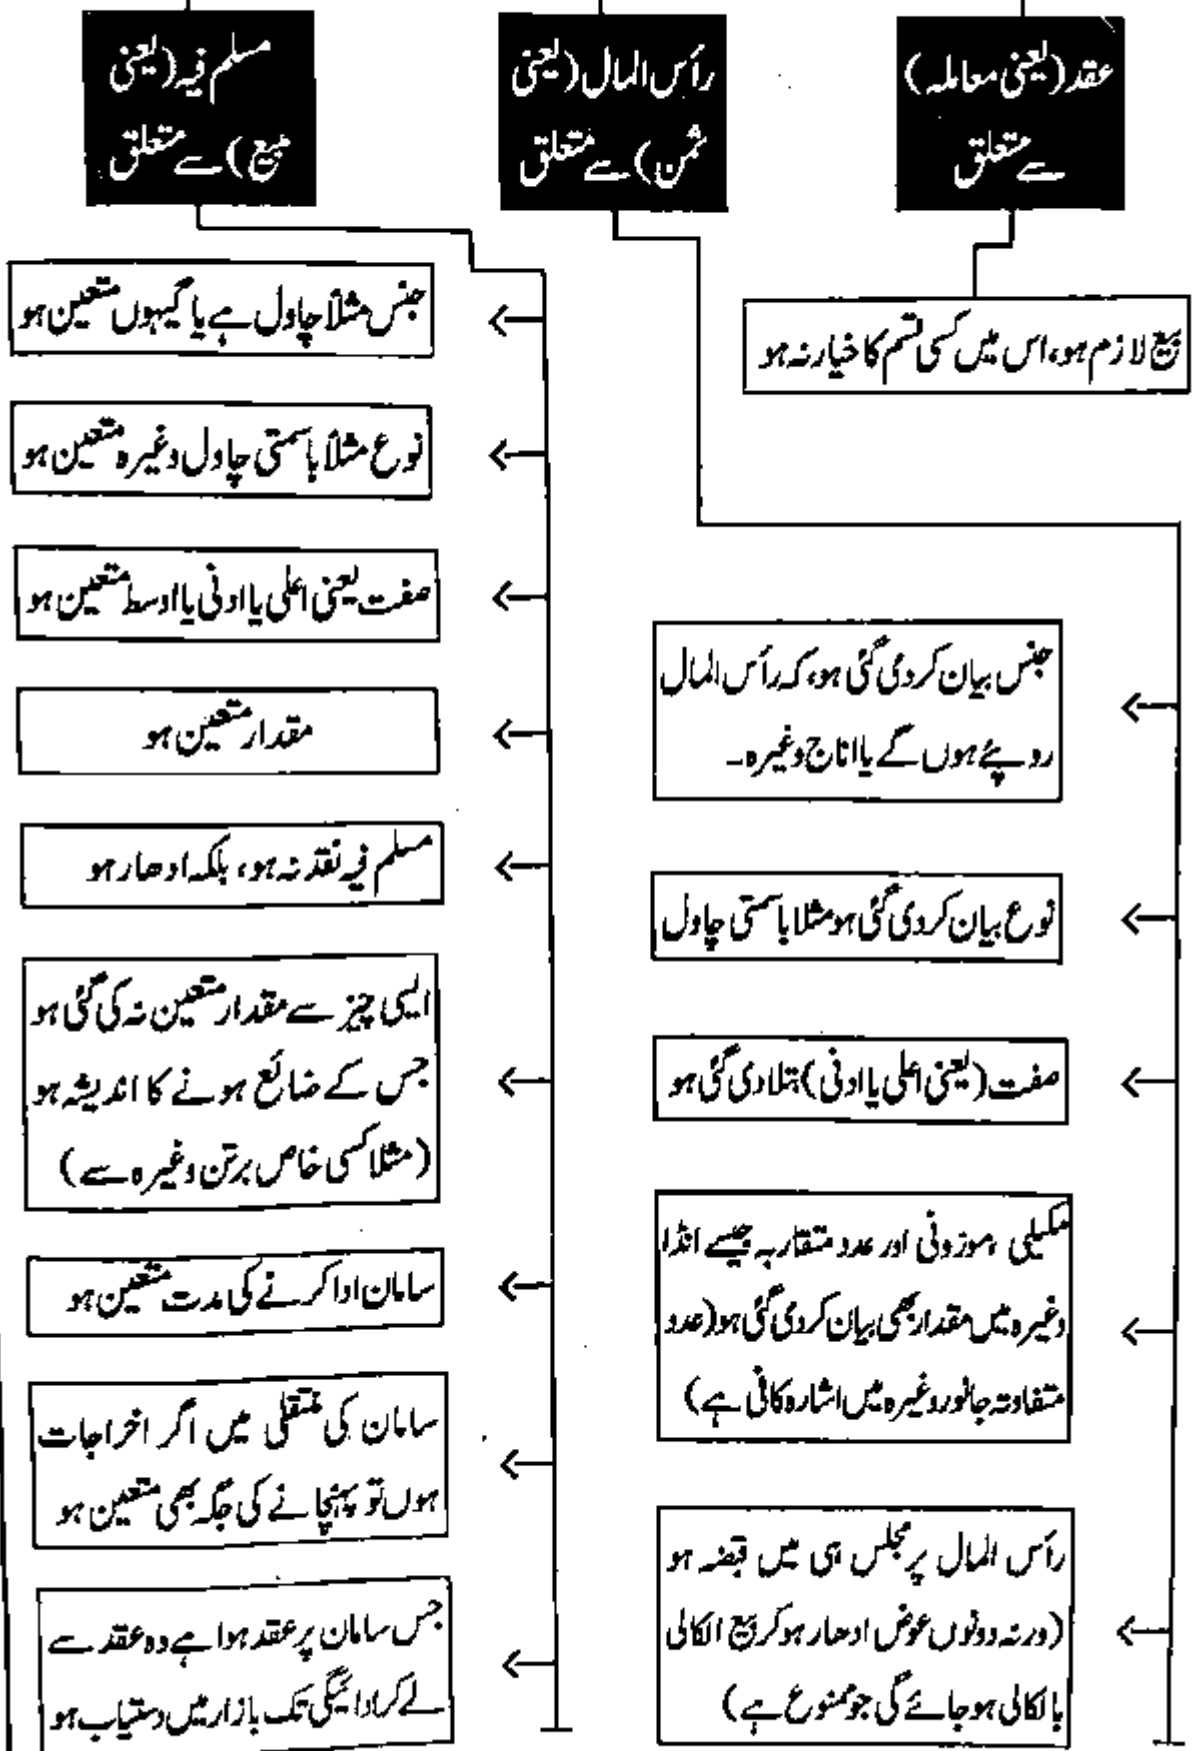 عقد (یعنی معاملہ)
سے متعلق
بیع لازم ہو، اس میں کسی قسم کا خیار نہ ہو
رأس المال (یعنی
ثمن) سے متعلق
جنس بیان کردی گئی ہو، کہ رأس المال
روپئے ہوں گے یا اناج وغیرہ۔
نوع بیان کردی گئی ہو مثلا باسمتی چاول
صفت (یعنی اعلی یا ادنی) بتلادی گئی ہو
مکیلی، موزونی اور عدد متقاربہ جیسے انڈا
وغیرہ میں مقدار بھی بیان کردی گئی ہو (عدد
متفاوتہ جانور وغیرہ میں اشارہ کافی ہے)
رأس المال پر مجلس ہی میں قبضہ ہو
(ورنہ دونوں عوض ادھار ہوکر بیع الکالی
بالکالی ہوجائے گی جو ممنوع ہے)
مسلم فیہ (یعنی
مبیع) سے متعلق
جنس مثلاً چاول ہے یا گیہوں متعین ہو
نوع مثلاً باسمتی چاول وغیرہ متعین ہو
صفت یعنی اعلی یا ادنی یا اوسط متعین ہو
مقدار متعین ہو
مسلم فیہ نقد نہ ہو، بلکہ ادھار ہو
ایسی چیز سے مقدار متعین نہ کی گئی ہو
جس کے ضائع ہونے کا اندیشہ ہو
(مثلا کسی خاص برتن وغیرہ سے)
سامان ادا کرنے کی مدت متعین ہو
سامان کی منتقلی میں اگر اخراجات
ہوں تو پہنچانے کی جگہ بھی متعین ہو
جس سامان پر عقد ہوا ہے وہ عقد سے
لے کر ادائیگی تک بازار میں دستیاب ہو